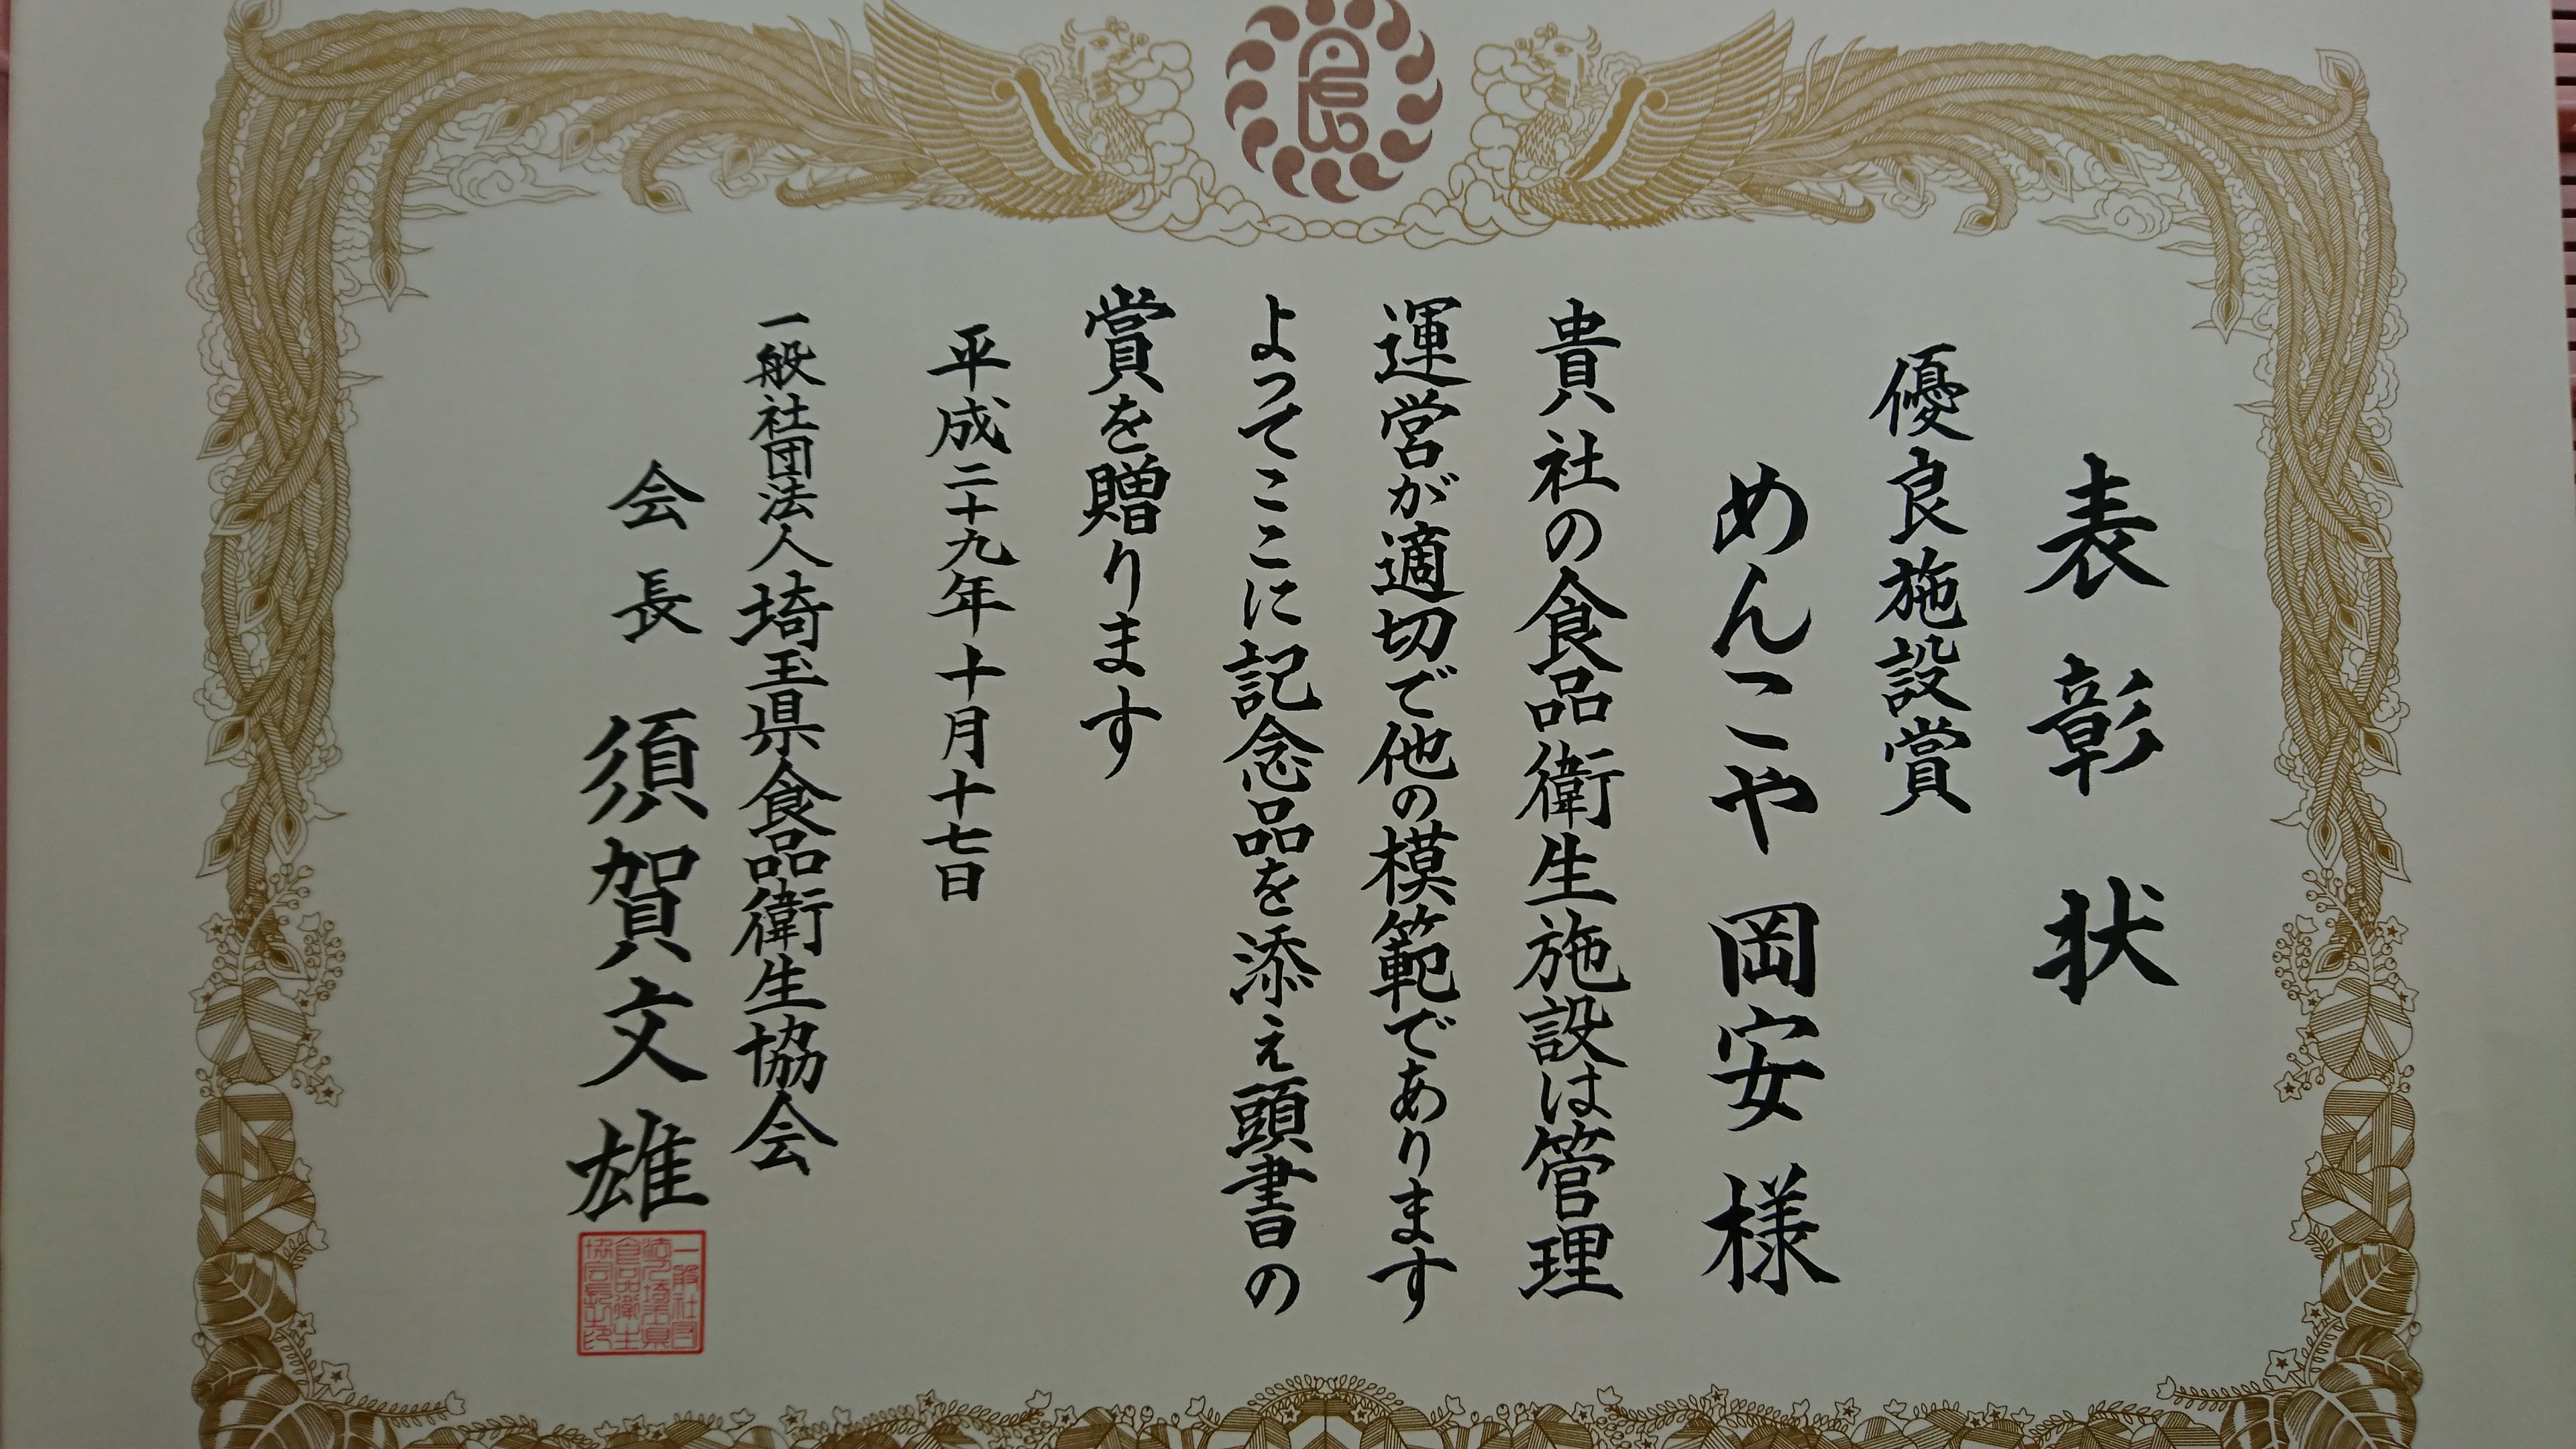 表彰状
優良施設賞
めんこや 岡安 様
貴社の食品衛生施設は管理
運営が適切で他の模範であります
よってここに記念品を添え頭書の
賞を贈ります
平成二十九年十月十七日
一般社団法人埼玉県食品衛生協会
会長 須賀文雄
一般社団
法人埼玉県
食品衛生
協会長之印